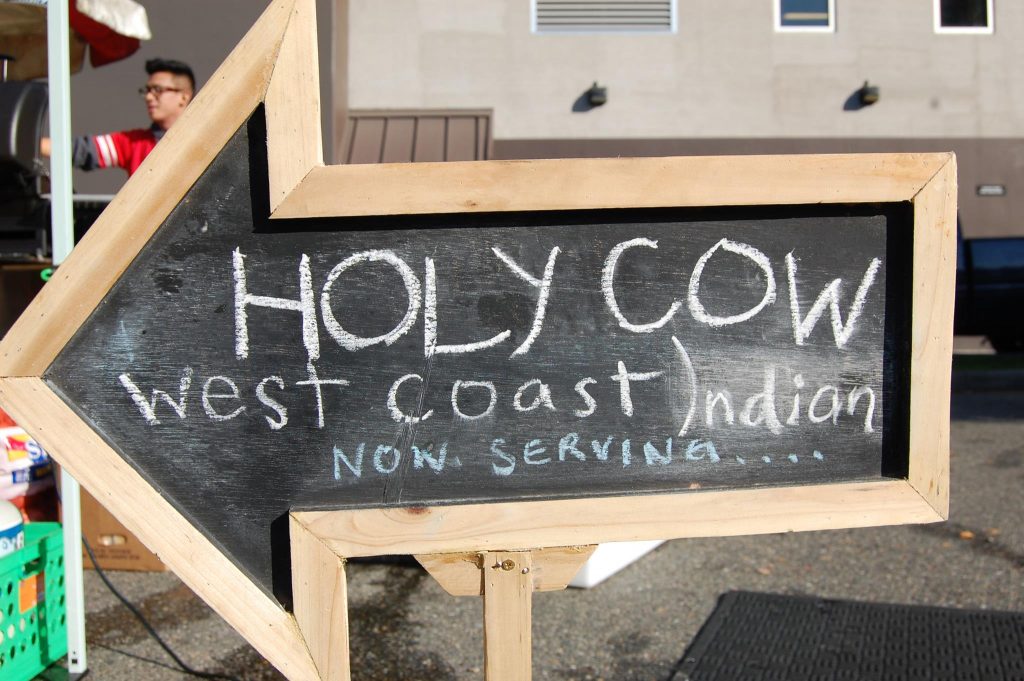 HOLY COW
West Coast Indian
NOW SERVING.....